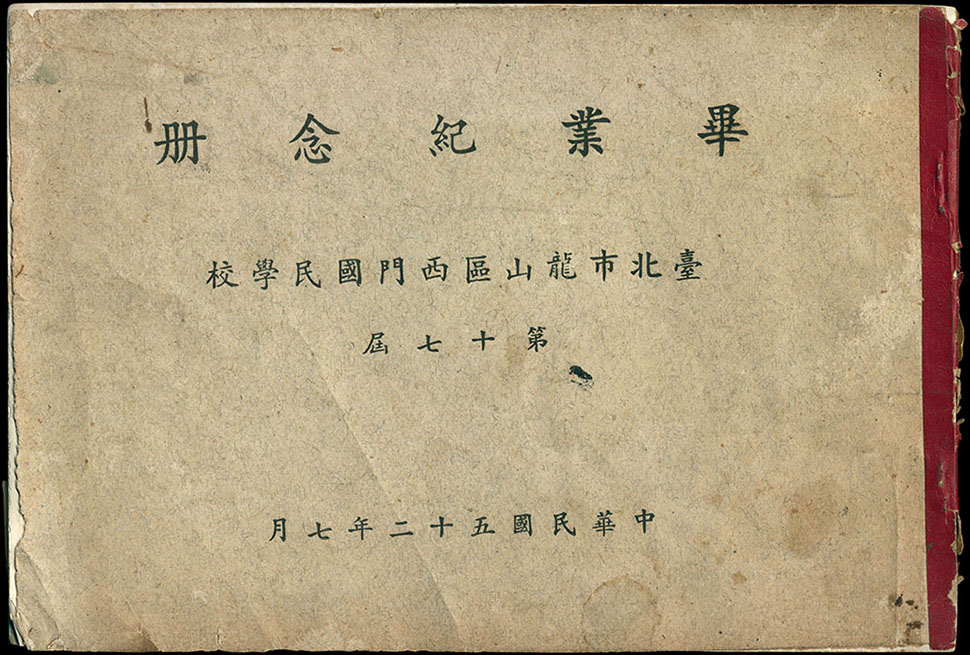 畢業紀念册
臺北市龍山區西門國民學校
第十七屆
中華民國五十二年七月